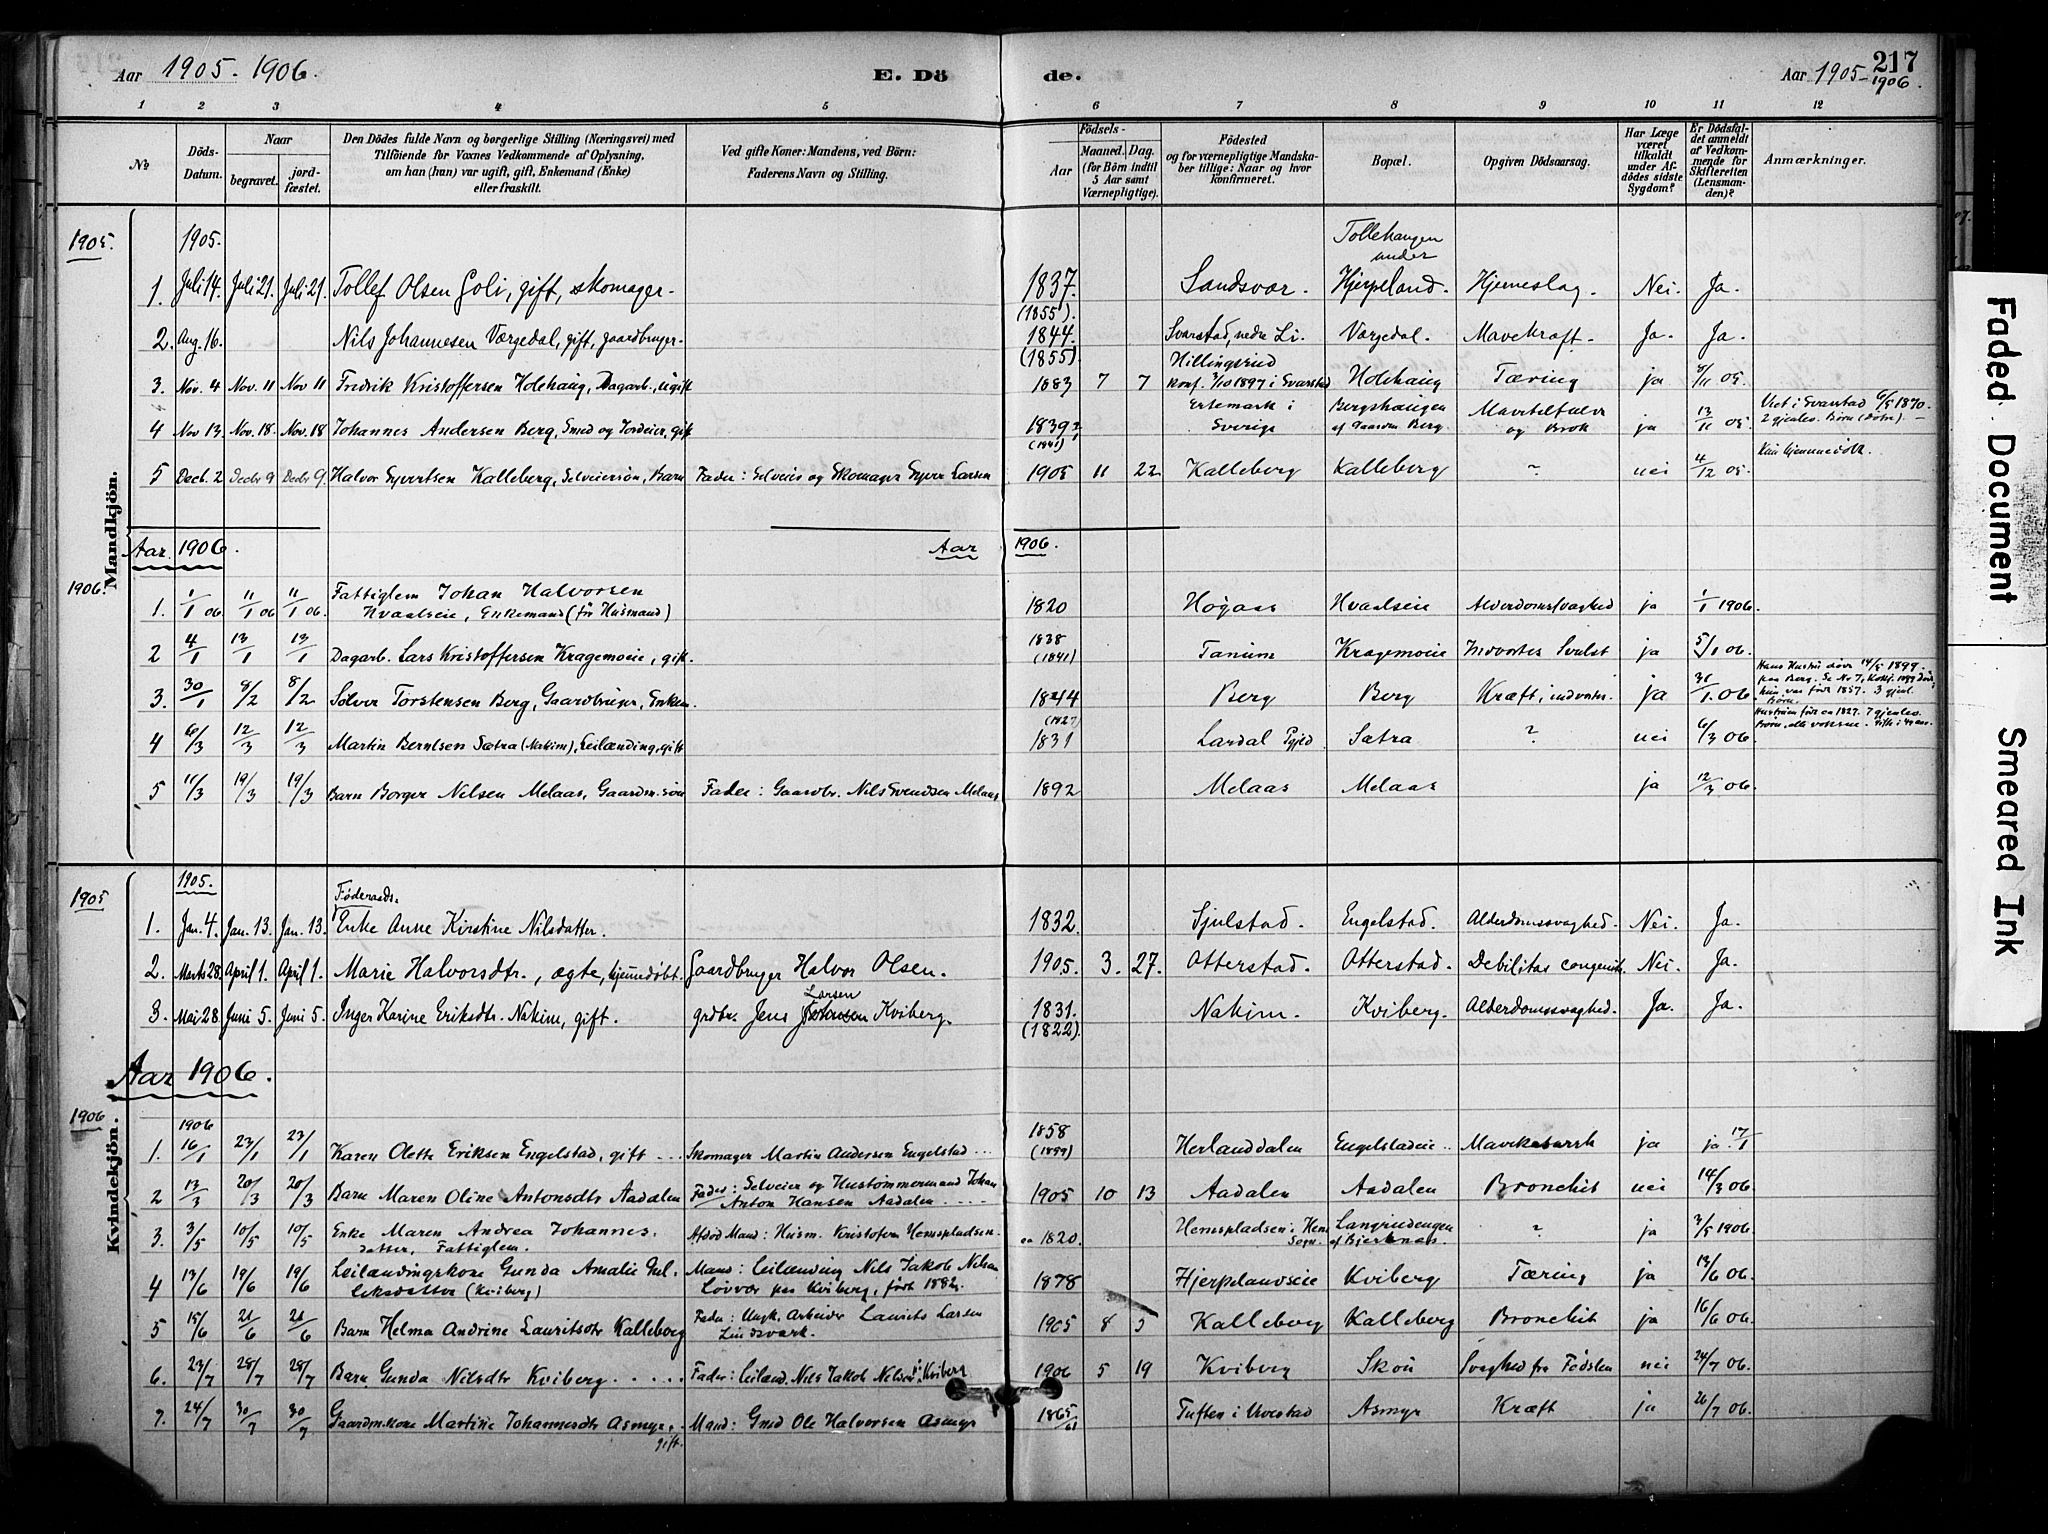 Aar 1905-1906. E. Dö de. Aar 1905-1906. 217
1 2 3 4 5 6 7 8 9 10 11 12
No Döds-Datum. Naar begravet. jord-fæstet. Den Dödes fulde Navn og borgerlige Stilling (Næringsvei) med Tilföiende for Voxnes Vedkommende af Oplysning, om han (hun) var ugift, gift, Enkemand (Enke) eller fraskilt. Ved gifte Koner: Mandens, ved Börn: Faderens Navn og Stilling. Födsels- Aar Maaned. Dag. (for Börn indtil 5 Aar samt Værnepligtige). Födested og for værnepligtige Mandskaber tillige: Naar og hvor konfirmeret. Bopæl. Opgiven Dödsaarsag. Har Læge været tilkaldt under Afdödes sidste Sygdom? Er Dödsfaldet anmeldt af Vedkommende for Skifteretten (Lensmanden)? Anmærkninger.
Mandkjön.
1905. 1905.
1. Juli 14. Juli 21. Juli 21. Tollef Olsen Goli, gift, skomager. 1837. (1855). Sandsvær. Tollehaugen under Hjerpeland. Hjerneslag. Nei. Ja.
2. Aug. 16. Nils Johannesen Værgedal, gift, gaardbruger. 1844. (1855). Svarstad, nedre Li. Værgedal. Mavekræft. Ja. Ja.
3. Nov. 4 Nov. 11 Nov 11 Fredrik Kristoffersen Holehaug, Dagarb., ugift 1883 7 7 Hillingsrud konf. 3/10 1897 i Svarstad Holehaug Tæring ja 8/11 05.
4 Nov 13. Nov. 18. Nov. 18 Johannes Andersen Berg, Smed og Jordeier, gift 1839? (1841) Ertemark i Sverige Bergshaugen af Gaarden Berg. og Brok ja 13/11 05. Viet i Svarstad 6/5 1870. 2 gjenlev. Børn (Døtre).
5 Decb. 2 Decbr 9 Decbr 9. Halvor Syvertsen Kalleberg, Selveiersøn, Barn Fader: Selveier og Skomager Syver Larsen 1905 11 22 Kalleberg Kalleberg ? nei 4/12 05. Kun hjemmedøbt.
Aar 1906. Aar 1906.
1906.
1. 1/1 06 11/1 06 11/1 06. Fattiglem Johan Halvorsen Hvaalseie, Enkemand (før Husmand) 1820 Høgaas Hvaalseie Alderdomssvaghed ja 1/1 1906.
2 4/1 13/1 13/1 Dagarb. Lars Kristoffersen Kragemoeie, gift. 1838 (1841) Tanum Kragemoeie Indvortes Svulst ja 5/1 06.
3. 30/1 8/2 8/2 Sølver Torstensen Berg, Gaardbruger, Enkem. 1844 Berg Berg Kræft, indvortes. ja 31/1. 06. Hans Hustru døde 14/5 1899. paa Berg. hun var født 1857. 3 gjenl. Børn.
4 6/3 12/3 12/3 Martin Berntsen Sætra (Nakim), Leilænding, gift (1827) 1831 Lardal Pgjed Sætra ? nei 6/3 06. Hustruen født ca 1827. 7 gjenlev. Børn, alle voksne.
5 11/3 19/3 19/3 Barn Borger Nilsen Melaas, Gaardm.søn Fader: Gaardbr. Nils Svendsen Melaas 1892 Melaas Melaas ja 12/3 06.
Kvindekjön.
1905 1905.
1. Jan. 4. Jan. 13. Jan. 13. Føderaads. Enke Anne Kirstine Nilsdatter. 1832. Sjulstad. Engelstad. Alderdomssvaghed. Nei. Ja.
2. Marts 28. April 1. April 1. Marie Halvorsdtr., ægte, hjemmedøbt. Gaardbruger Halvor Olsen. 1905. 3. 27. Otterstad. Otterstad. Debilitas congenita. Nei. Ja.
3. Mai 28. Juni 5. Juni 5. Inger Karine Eriksdtr. Nakim, gift. grdbr. Jens Larsen Kviberg. 1831. (1822). Nakim. Kviberg. Alderdomssvaghed. Ja. Ja.
Aar 1906.
1906 1906
1. 16/1 23/1 23/1 Karen Olette Eriksen Engelstad, gift ... Skomager Martin Andersen Engelstad ... 1858 (1899) Herlanddalen Engelstadeie ja ja 17/1
2 13/3 20/3 20/3 Barn Maren Oline Antonsdtr Aadalen Fader: Selveier og Hustømmermand Johan Anton Hansen Aadalen .... 1905 10 13 Aadalen Aadalen Bronchit nei 14/3 06.
3. 3/5 10/5 10/5 Enke Maren Andrea Johannesdatter, Fattiglem. Afdød Mand: Husm. Kristofer Hemspladsen. ca 1820. Hemspladsen i Hem Sogn. Langrudengen af Bjerknæs. ? ja 3/5 1906.
4 13/6 19/6 19/6 Leilændingskone Gunda Amalie Gulleksdatter (Kviberg) Mand: Leilænding Nils Jakob Nilsen Løvvær paa Kviberg, født 1882. 1878 Hjerpelandseie Kviberg Tæring ja 13/6 06.
5 15/6 21/6 21/6 Barn Helma Andrine Lauritsdtr Kalleberg Fader: Ungk. Arbeider Laurits Larsen Lindsverk. 1905 8 5 Kalleberg Kalleberg Bronchit ja 16/6 06.
6. 23/7 28/7 28/7 Barn Gunda Nilsdtr Kviberg ..... Fader: Leilænd. Nils Jakob Nilsen, Kviberg 1906 5 19 Kviberg Skou Svaghed fra Fødslen nei 24/7 06.
7. 24/7 30/7 30/7 Gaardm.kone Martine Johannesdtr Asmyr, gift. Mand: Gmd Ole Halvorsen Asmyr 1865/61 Tuften i Hvestad Asmyr Kræft ja 26/7 06.
Faded Document
Smeared Ink